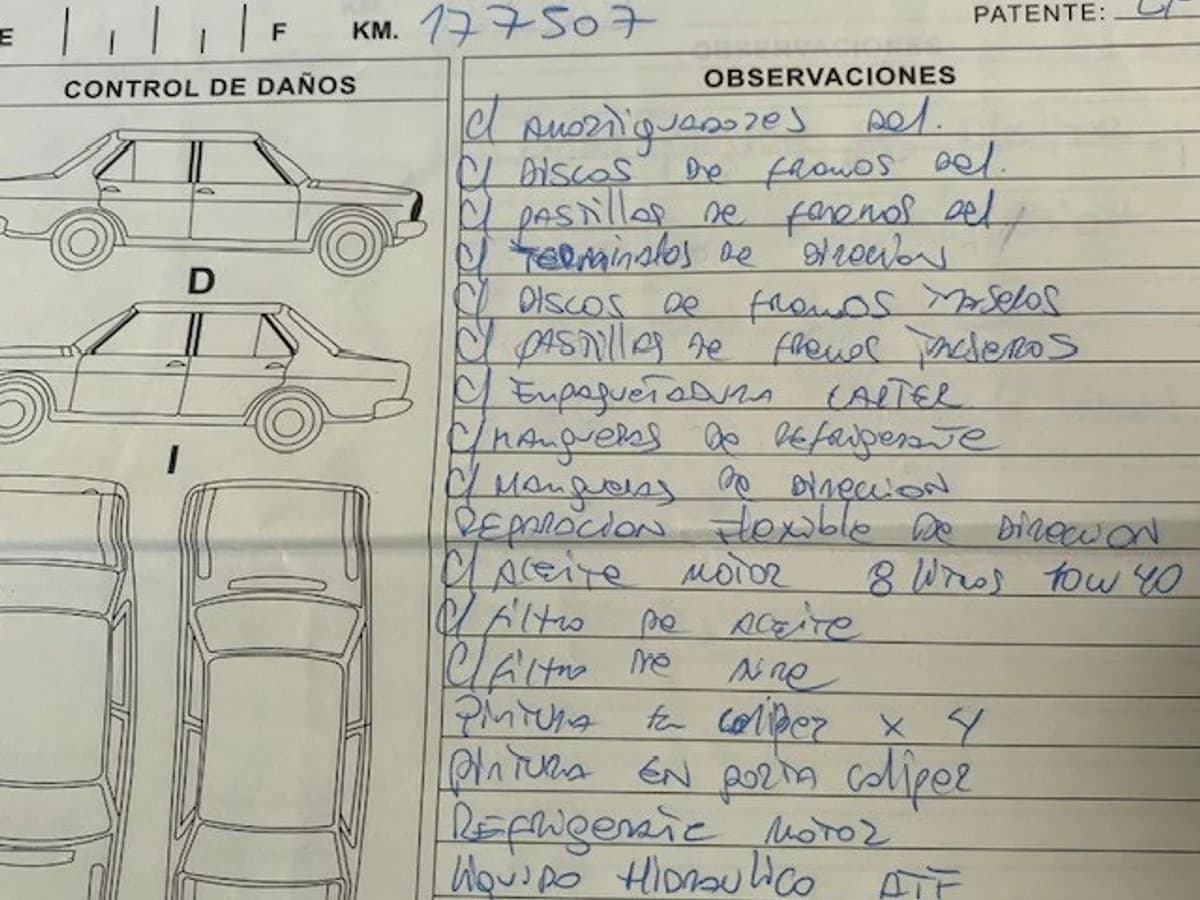 E F KM. 177507 PATENTE:
CONTROL DE DAÑOS
OBSERVACIONES
C/ AMORTIGUADORES DEL.
C/ DISCOS DE FRENOS DEL.
C/ PASTILLAS DE FRENOS DEL
C/ TERMINALES DE DIRECCION
C/ DISCOS DE FRENOS TRASEROS
C/ PASTILLAS DE FRENOS TRASEROS
C/ EMPAQUETADURA CARTER
C/ MANGUERAS DE REFRIGERANTE
C/ MANGUERAS DE DIRECCION
REPARACION FLEXIBLE DE DIRECCION
C/ ACEITE MOTOR 8 LITROS 10W40
C/ FILTRO DE ACEITE
C/ FILTRO DE AIRE
PINTURA EN CALIPER X 4
PINTURA EN PORTA CALIPER
REFRIGERANTE MOTOR
LIQUIDO HIDRAULICO ATF
D
I